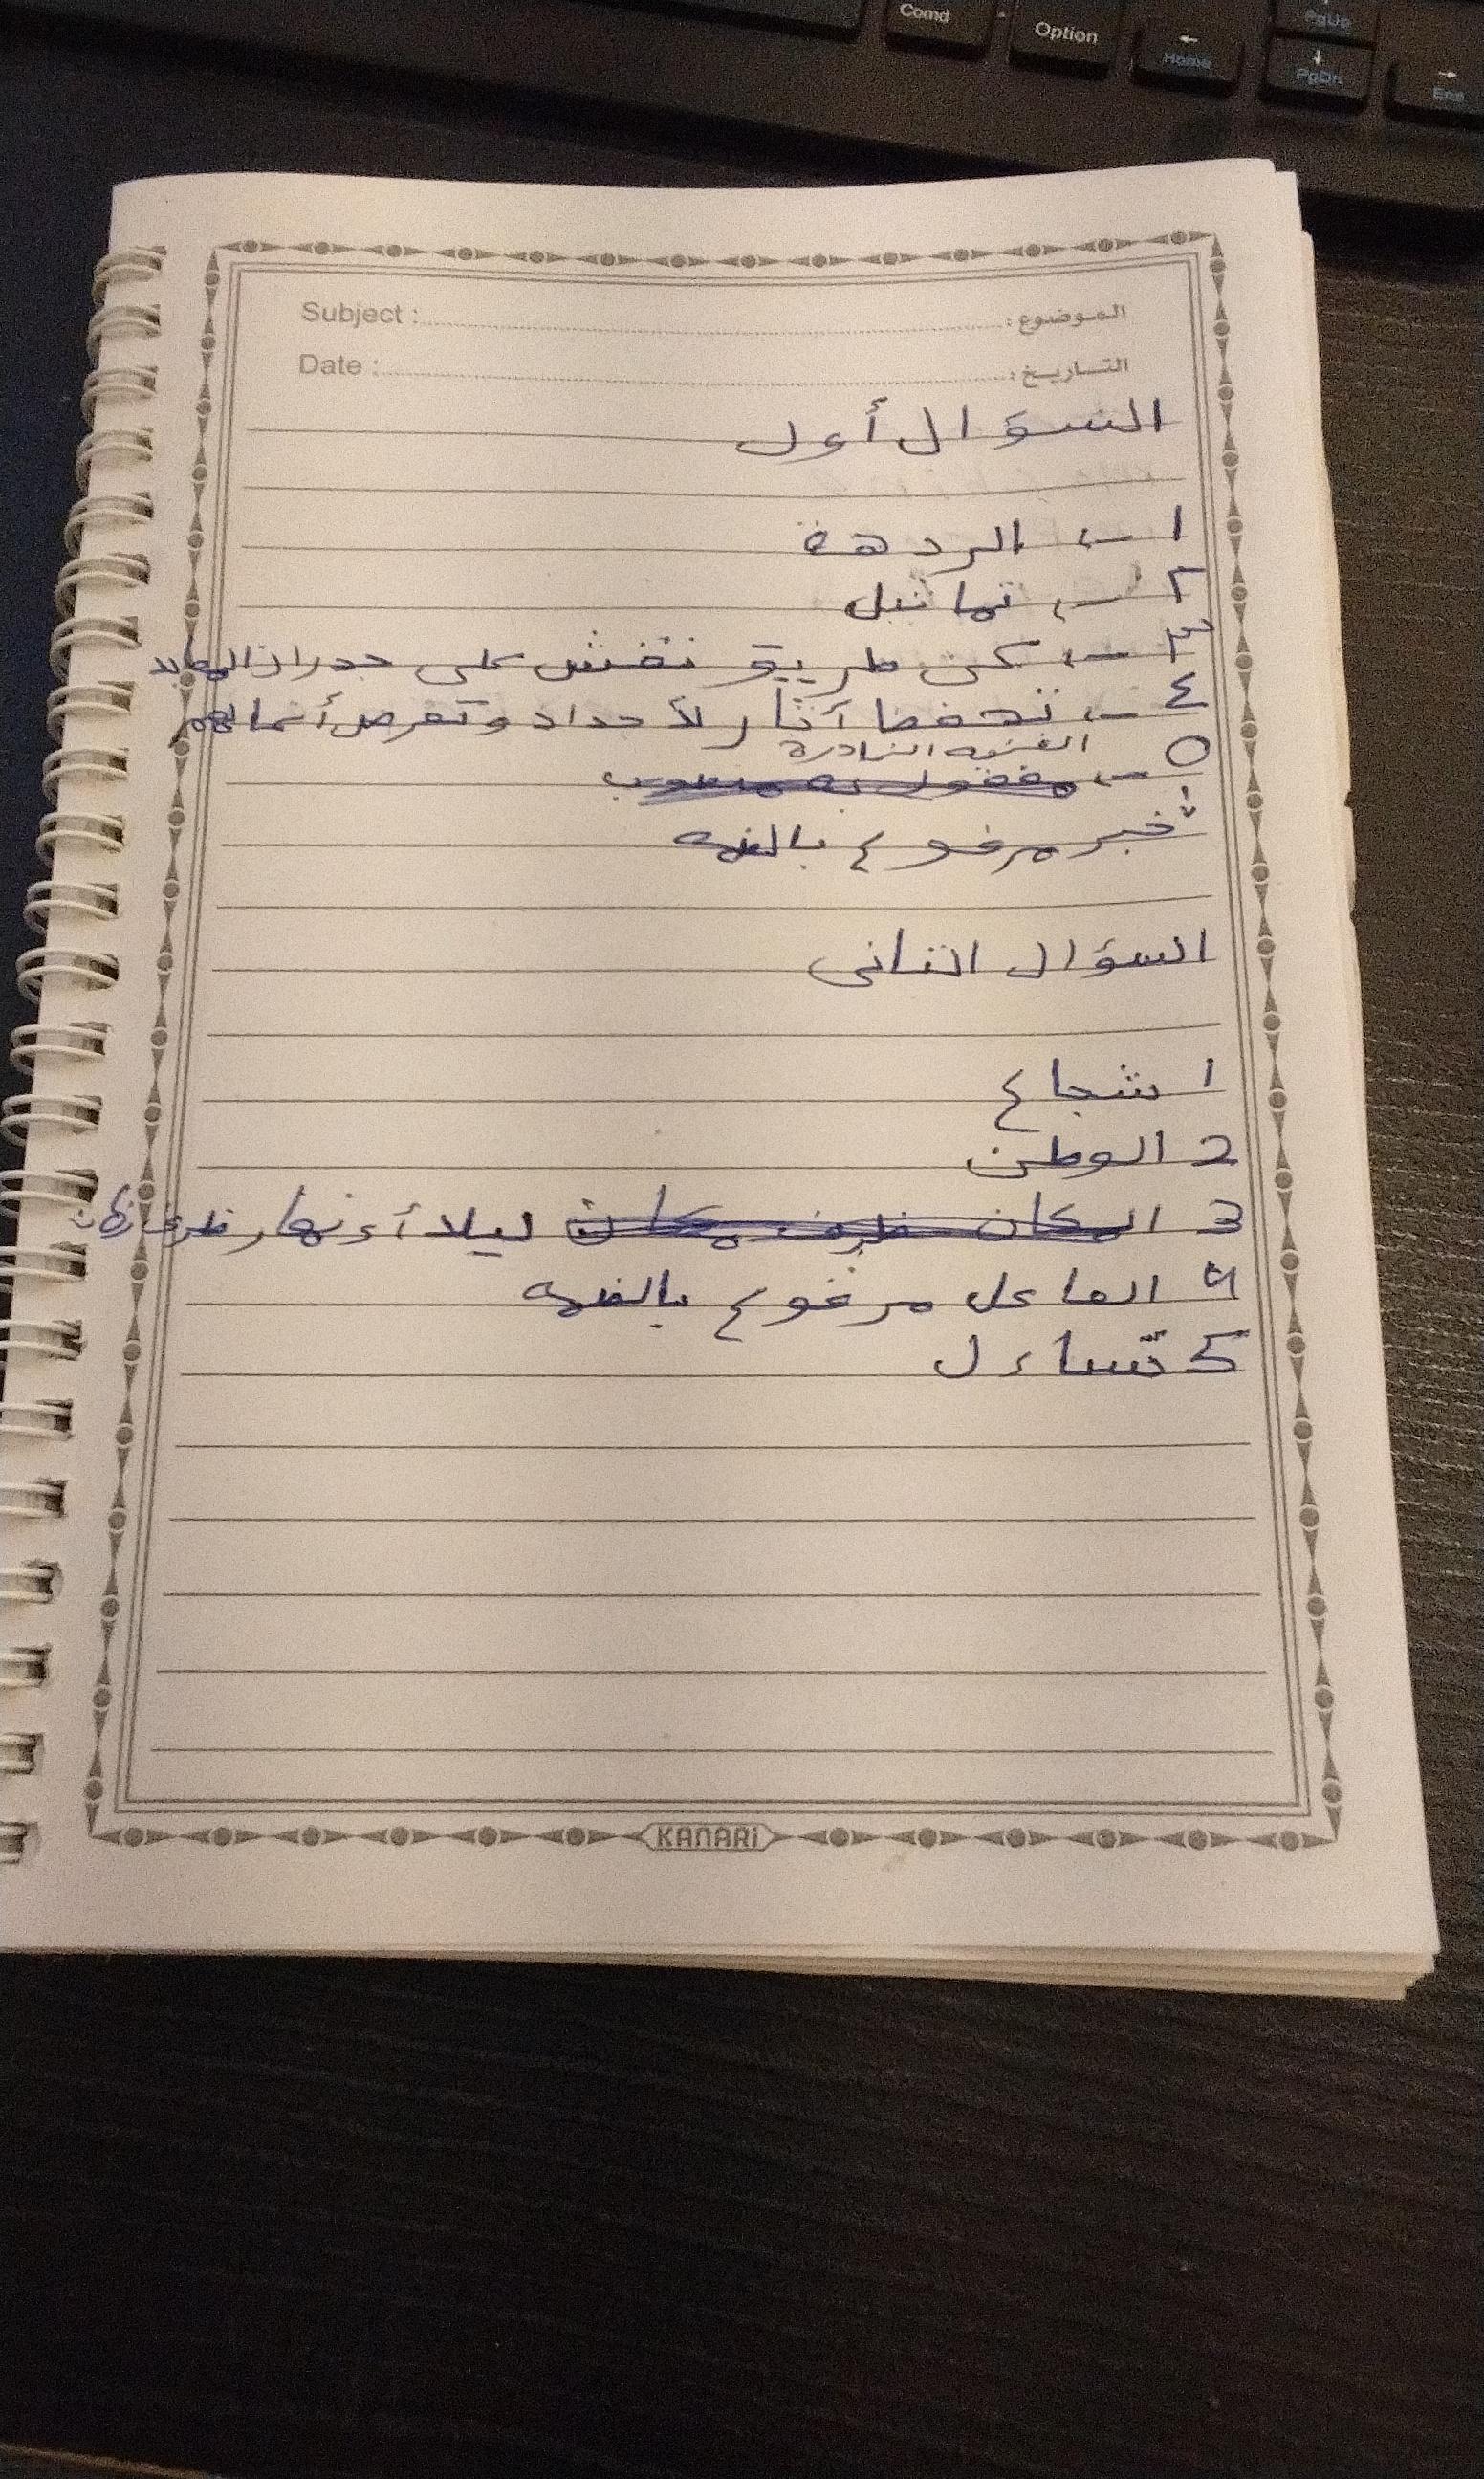 Comd
Option
Home
PgUp
PgDn
End
Subject : الموضوع :
Date : التاريخ :
السؤال أول
١ - الردهة
٢ - تماثيل
٣ - عن طريق نقش على جدران المعابد
٤ - تحفظ آثار لأجداد وتعرض أعمالهم
الفنيه النادرة
٥ -
خبر مرفوع بالضمه
السؤال الثانى
١ شجاع
2 الوطن
3 ليلا أو نهار ظرف زمان
4 الفاعل مرفوع بالضمه
5 تساءل
KANARi